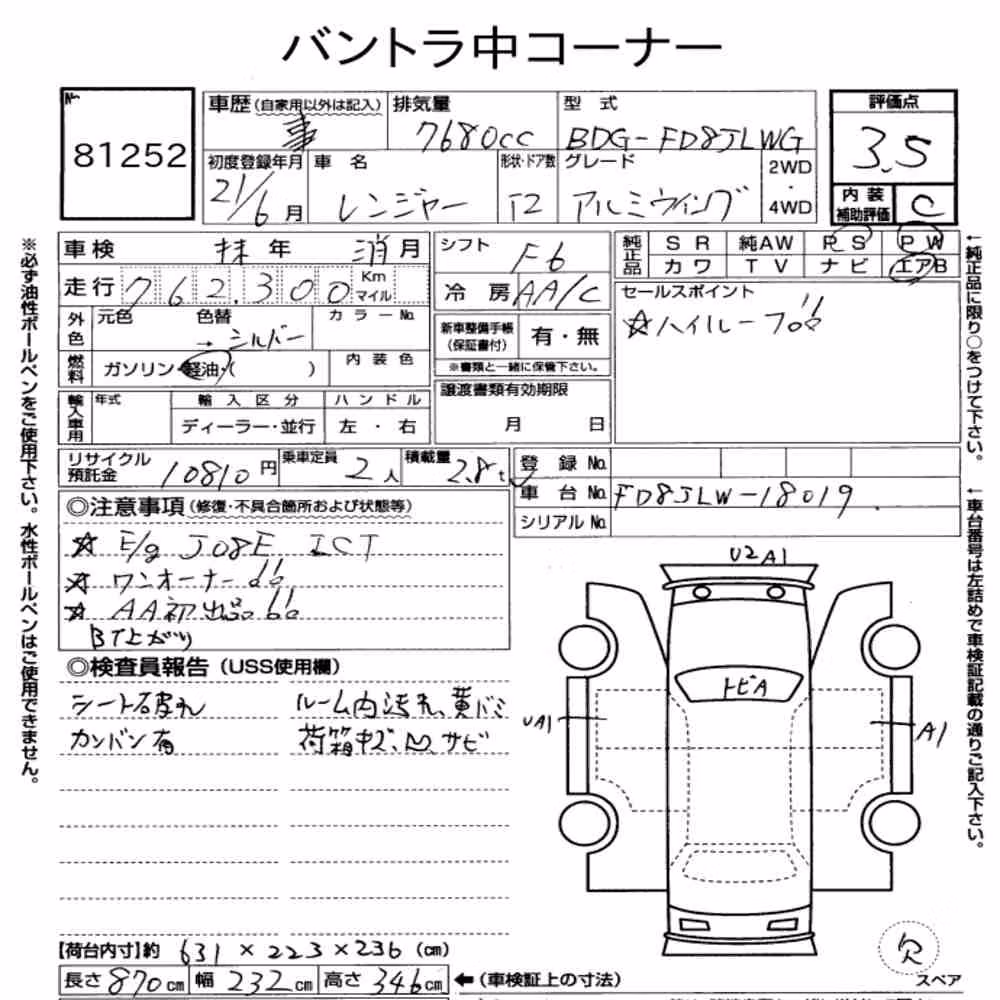 バントラ中コーナー
No. 81252
車歴(自家用以外は記入) 事
排気量 7680cc
型式 BDG-FD8JLWG
評価点 3.5
初度登録年月 21/6月
車名 レンジャー
形状・ドア数 T2
グレード アルミウイング
2WD・4WD
内装補助評価 C
車検 抹年 消月
シフト F6
純正品 SR 純AW PS PW
カワ TV ナビ エアB
走行 762.300 Km マイル
冷房 AA/C
セールスポイント
☆ハイルーフ!!
外色 元色 色替 →シルバー カラーNo.
新車整備手帳(保証書付) 有・無
※書類と一緒に保管下さい。
燃料 ガソリン・軽油・( ) 内装色
譲渡書類有効期限
月 日
輸入車用 年式 輸入区分 ハンドル
ディーラー・並行 左・右
リサイクル預託金 10810円 乗車定員 2人 積載量 2.8t
登録No.
車台No. FD8JLW-18019
シリアルNo.
◎注意事項(修復・不具合箇所および状態等)
☆ E/g J08E ICT
☆ ワンオーナー!!
☆ AA初出品!!
BT上がり
◎検査員報告(USS使用欄)
シート破れ ルーム内汚れ、黄バミ
カンバン有 荷箱中ズ、凹、サビ
U2A1
トビA
UA1
A1
欠
スペア
【荷台内寸】約 631×223×236(cm)
長さ870cm 幅232cm 高さ346cm ←(車検証上の寸法)
※必ず油性ボールペンをご使用下さい。水性ボールペンはご使用できません。
←純正品に限り○をつけて下さい。
←車台番号は左詰めで車検証記載の通りご記入下さい。